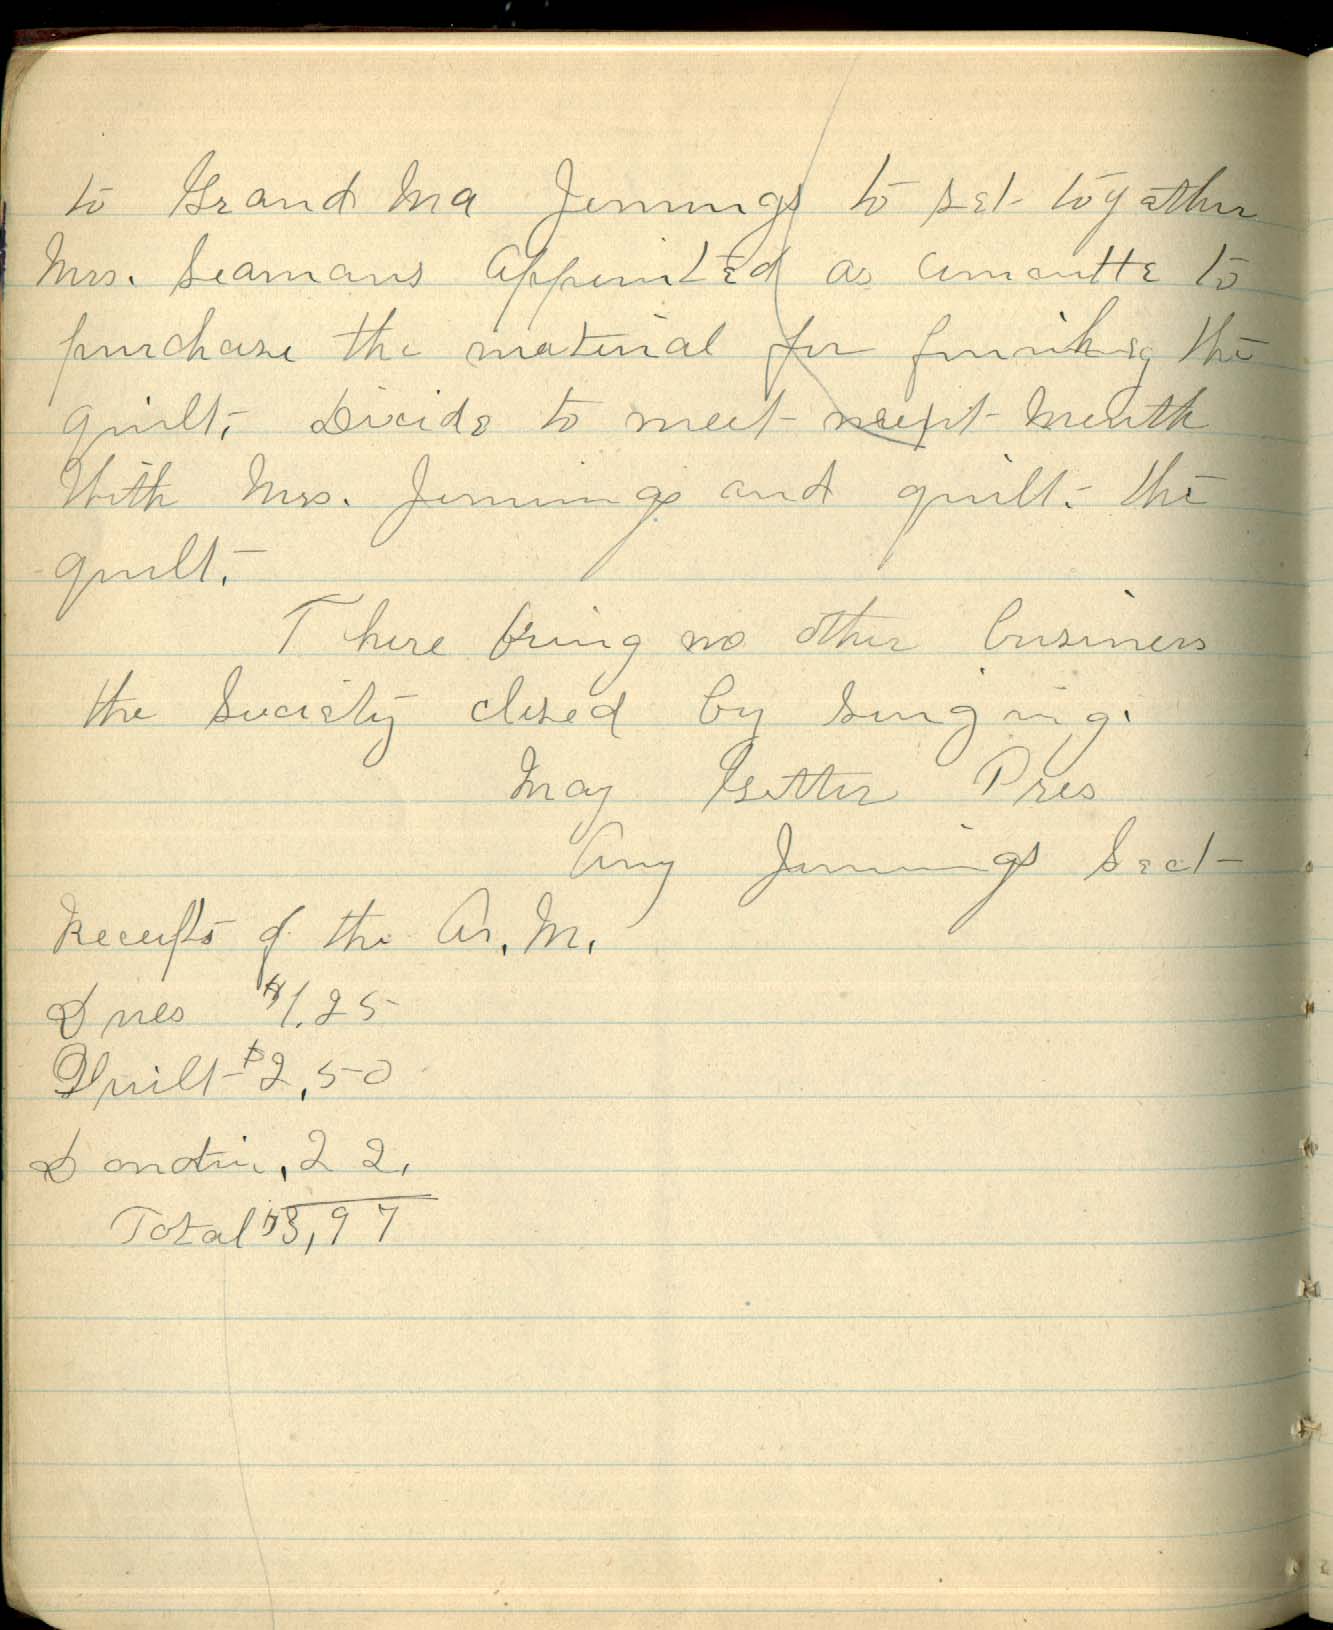 to Grand Ma Jennings to set together
Mrs. Seamans Appointed as comoutte to
purchase the material for finishing the
quilt, Decide to meet next Month
With Mrs. Jennings and quilt the
quilt.
There being no other business
the Society closed by singing.
May Getter Pres
Amy Jennings Sect
Receipts of the A. M.
Dues $1.25
Quilt $2,50
Donation .22.
Total $3,97